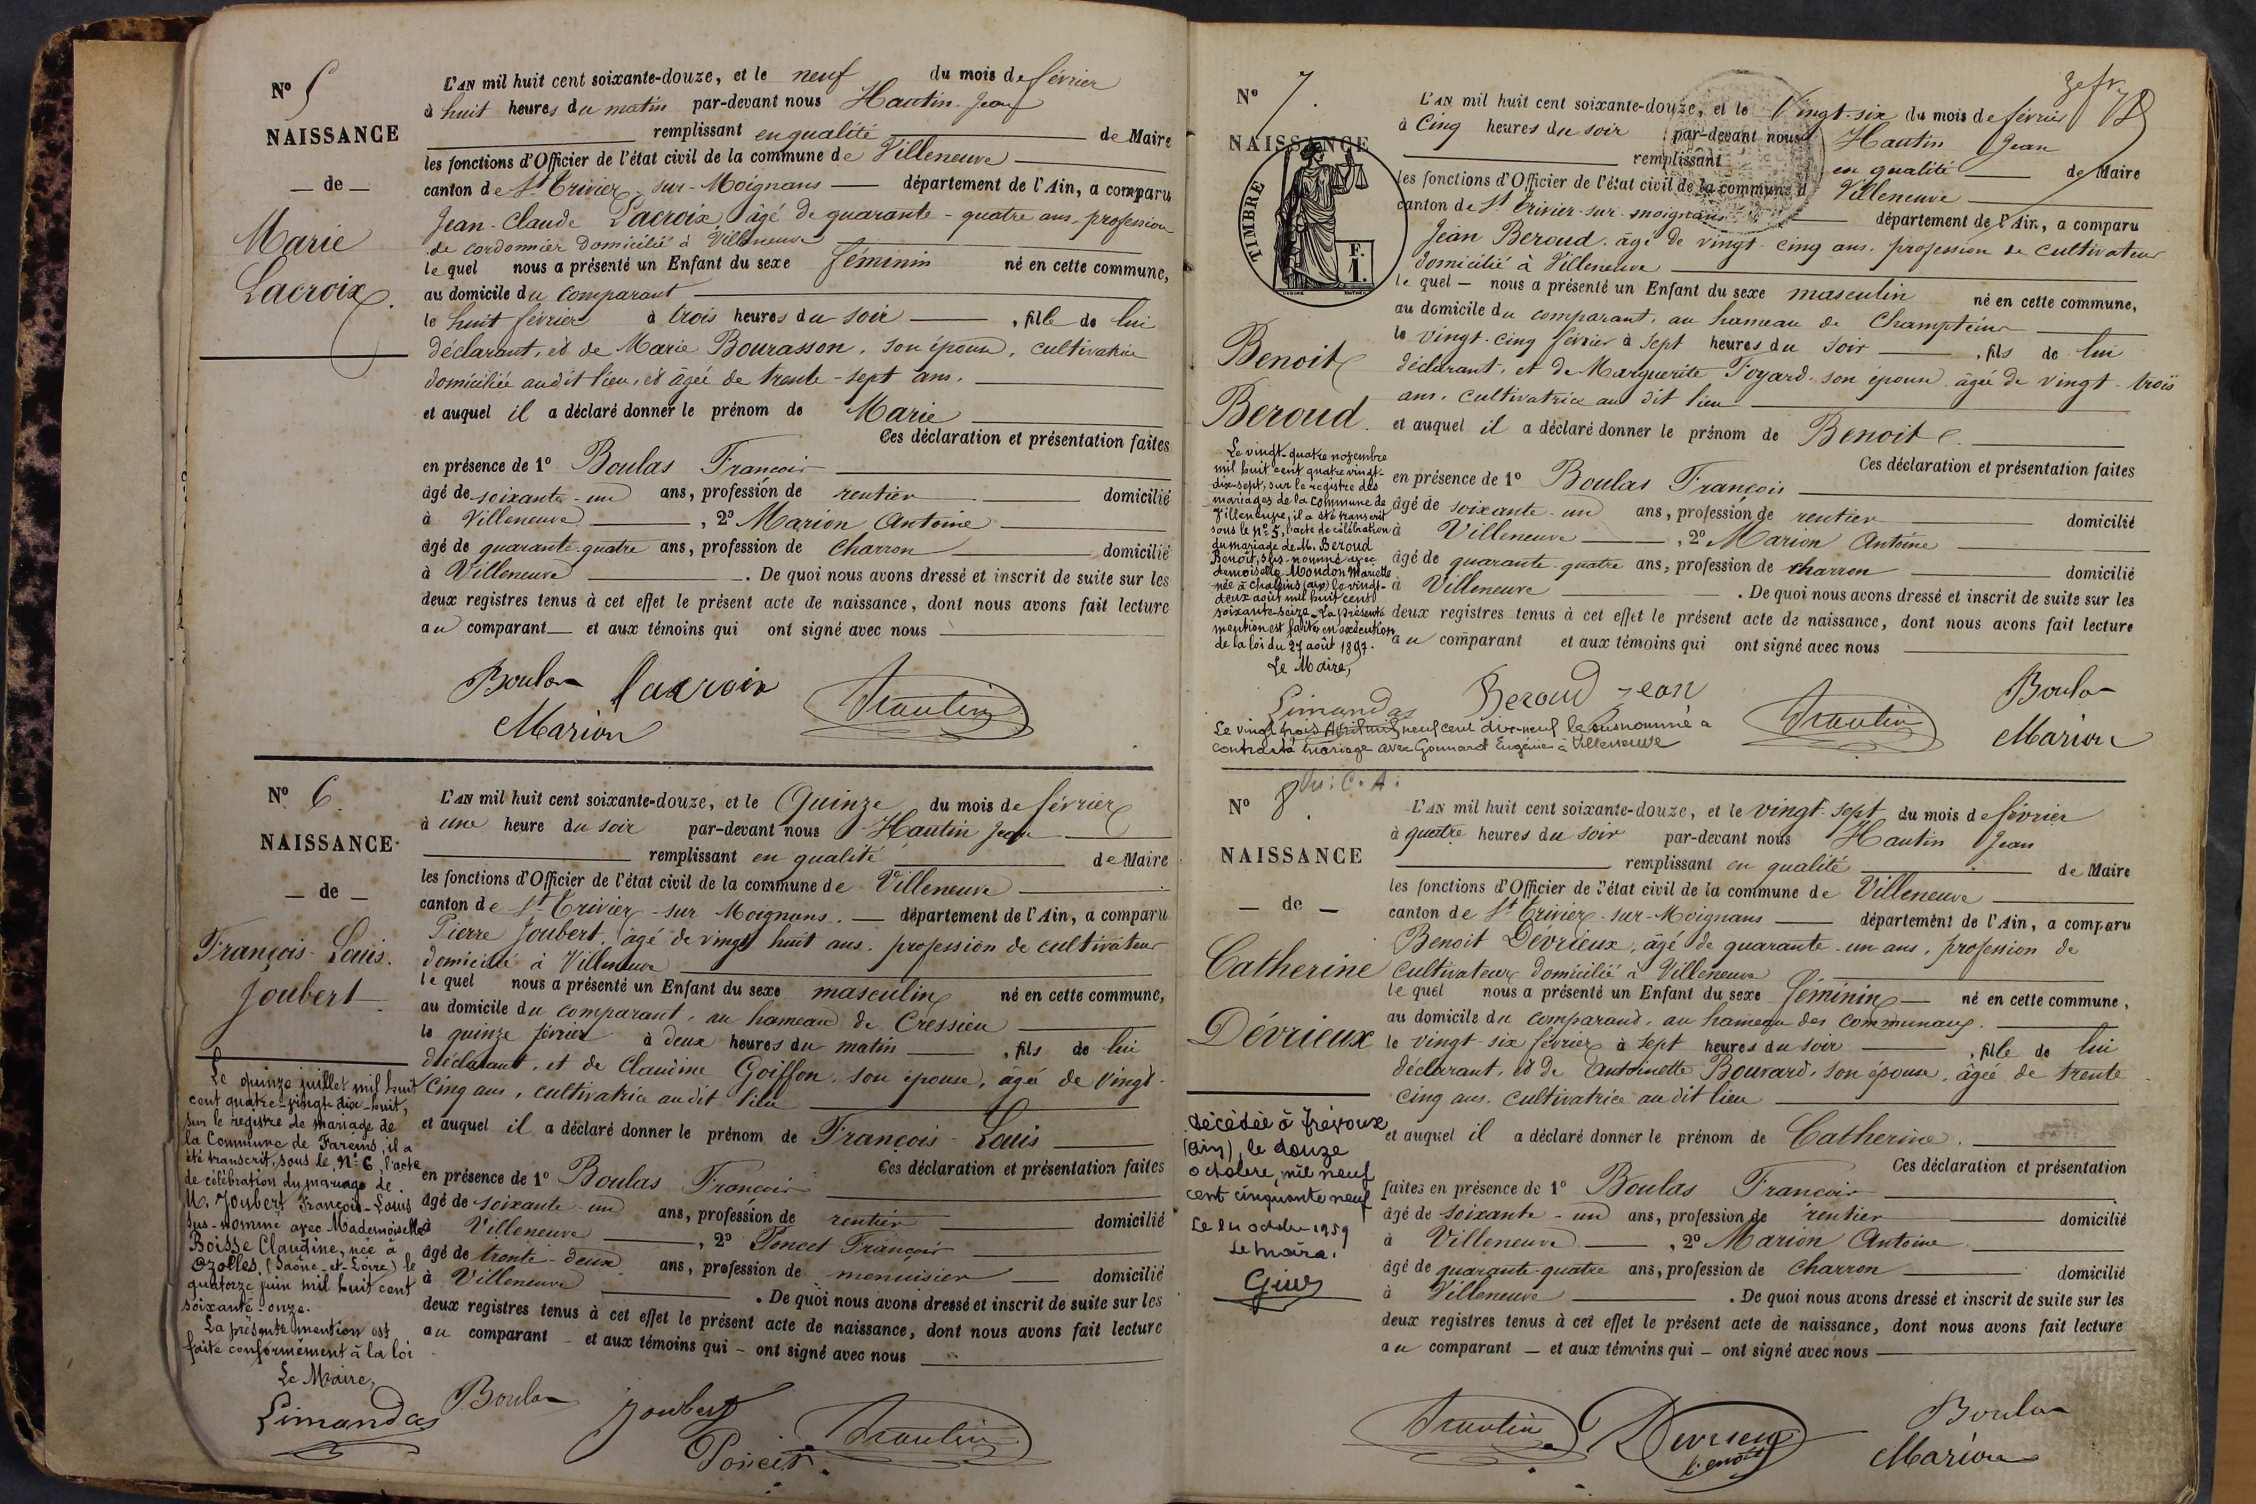 N° 5
NAISSANCE
— de —
Marie
Lacroix.
L'AN mil huit cent soixante-douze, et le neuf du mois de février
à huit heures du matin par-devant nous Hautin Jean
remplissant en qualité de Maire
les fonctions d'Officier de l'état civil de la commune de Villeneuve
canton de St Trivier-sur-Moignans département de l'Ain, a comparu
Jean-Claude Lacroix, âgé de quarante-quatre ans, profession
de cordonnier domicilié à Villeneuve
le quel nous a présenté un Enfant du sexe féminin né en cette commune,
au domicile du comparant
le huit février à trois heures du soir, fille de lui
déclarant, et de Marie Bourasson, son épouse, cultivatrice
domiciliée audit lieu, et âgée de trente-sept ans.
et auquel il a déclaré donner le prénom de Marie
Ces déclaration et présentation faites
en présence de 1° Boulas François
âgé de soixante-un ans, profession de rentier domicilié
à Villeneuve, 2° Marion Antoine
âgé de quarante-quatre ans, profession de charron domicilié
à Villeneuve. De quoi nous avons dressé et inscrit de suite sur les
deux registres tenus à cet effet le présent acte de naissance, dont nous avons fait lecture
au comparant et aux témoins qui ont signé avec nous
Boulas Lacroix Hautin
Marion
N° 6.
NAISSANCE
— de —
François-Louis.
Joubert
Le quinze juillet mil huit
cent quatre-vingt-dix-huit,
sur le registre de mariage de
la Commune de Fareins, il a
été transcrit, sous le N° 6, l'acte
de célébration du mariage de
M. Joubert François-Louis
sus-nommé avec Mademoiselle
Boisse Claudine, née à
Ozolles, (Saône-et-Loire) le
quatorze juin mil huit cent
soixante-onze.
La présente mention est
faite conformément à la loi
Le Maire,
Limandas
L'AN mil huit cent soixante-douze, et le Quinze du mois de février
à une heure du soir par-devant nous Hautin Jean
remplissant en qualité de Maire
les fonctions d'Officier de l'état civil de la commune de Villeneuve
canton de St Trivier-sur Moignans. département de l'Ain, a comparu
Pierre Joubert, âgé de vingt huit ans, profession de cultivateur
domicilié à Villeneuve
le quel nous a présenté un Enfant du sexe masculin né en cette commune,
au domicile du comparant, au hameau de Cressieu
le quinze février à deux heures du matin, fils de lui
déclarant, et de Claudine Goiffon, son épouse, âgée de vingt-
cinq ans, cultivatrice audit lieu
et auquel il a déclaré donner le prénom de François-Louis
Ces déclaration et présentation faites
en présence de 1° Boulas François
âgé de soixante-un ans, profession de rentier domicilié
à Villeneuve, 2° Poncet François
âgé de trente-deux ans, profession de menuisier domicilié
à Villeneuve. De quoi nous avons dressé et inscrit de suite sur les
deux registres tenus à cet effet le présent acte de naissance, dont nous avons fait lecture
au comparant et aux témoins qui ont signé avec nous
Boulas Joubert Hautin
Poncet
N° 7.
NAISSANCE
TIMBRE
F.
1.
Benoit
Beroud.
Le vingt-quatre novembre
mil huit cent quatre vingt-
dix-sept, sur le registre des
mariages de la Commune de
Villeneuve, il a été transcrit
sous le n° 5, l'acte de célébration
du mariage de M. Beroud
Benoit, sus-nommé avec
demoiselle Mondon Mariette
née à Chaleins (Ain) le vingt-
deux août mil huit cent
soixante-seize. La présente
mention est faite en exécution
de la loi du 27 août 1897.
Le Maire,
Limandas
L'AN mil huit cent soixante-douze, et le Vingt-six du mois de février
à Cinq heures du soir par-devant nous Hautin Jean
remplissant en qualité de Maire
les fonctions d'Officier de l'état civil de la commune d Villeneuve
canton de St Trivier-sur-moignans département de l'Ain, a comparu
Jean Beroud, âgé de vingt-cinq ans, profession de cultivateur
domicilié à Villeneuve
le quel nous a présenté un Enfant du sexe masculin né en cette commune,
au domicile du comparant, au hameau de
le vingt-cinq février à sept heures du soir, fils de lui
déclarant, et de Marguerite Foyard, son épouse âgée de vingt-trois
ans, cultivatrice au dit lieu
et auquel il a déclaré donner le prénom de Benoit.
Ces déclaration et présentation faites
en présence de 1° Boulas François
âgé de soixante-un ans, profession de rentier domicilié
à Villeneuve, 2° Marion Antoine
âgé de quarante-quatre ans, profession de charron domicilié
à Villeneuve. De quoi nous avons dressé et inscrit de suite sur les
deux registres tenus à cet effet le présent acte de naissance, dont nous avons fait lecture
au comparant et aux témoins qui ont signé avec nous
Beroud Jean Hautin Boulas
Marion
Le vingt trois Avril mil neuf cent dix-neuf le susnommé a
contracté mariage avec Gonnard Eugénie à Villeneuve
N° 8.
NAISSANCE
— de —
Catherine
Dévrieux
décédée à Trévoux
(Ain), le douze
octobre, mil neuf
cent cinquante neuf
Le octobre 1959
Le Maire.
L'AN mil huit cent soixante-douze, et le vingt-sept du mois de février
à quatre heures du soir par-devant nous Hautin Jean
remplissant en qualité de Maire
les fonctions d'Officier de l'état civil de la commune de Villeneuve
canton de St Trivier-sur-Moignans département de l'Ain, a comparu
Benoit Dévrieux, âgé de quarante-un ans, profession de
cultivateur domicilié à Villeneuve
le quel nous a présenté un Enfant du sexe féminin né en cette commune,
au domicile du comparant, au hameau des communaux.
le vingt-six février à sept heures du soir, fille de lui
déclarant, et de Antoinette Bouvard, son épouse, âgée de trente-
cinq ans, cultivatrice au dit lieu
et auquel il a déclaré donner le prénom de Catherine.
Ces déclaration et présentation
faites en présence de 1° Boulas François
âgé de soixante-un ans, profession de rentier domicilié
à Villeneuve, 2° Marion Antoine
âgé de quarante-quatre ans, profession de charron domicilié
à Villeneuve. De quoi nous avons dressé et inscrit de suite sur les
deux registres tenus à cet effet le présent acte de naissance, dont nous avons fait lecture
au comparant — et aux témoins qui — ont signé avec nous
Hautin Devrieux Benoit Boulas
Marion